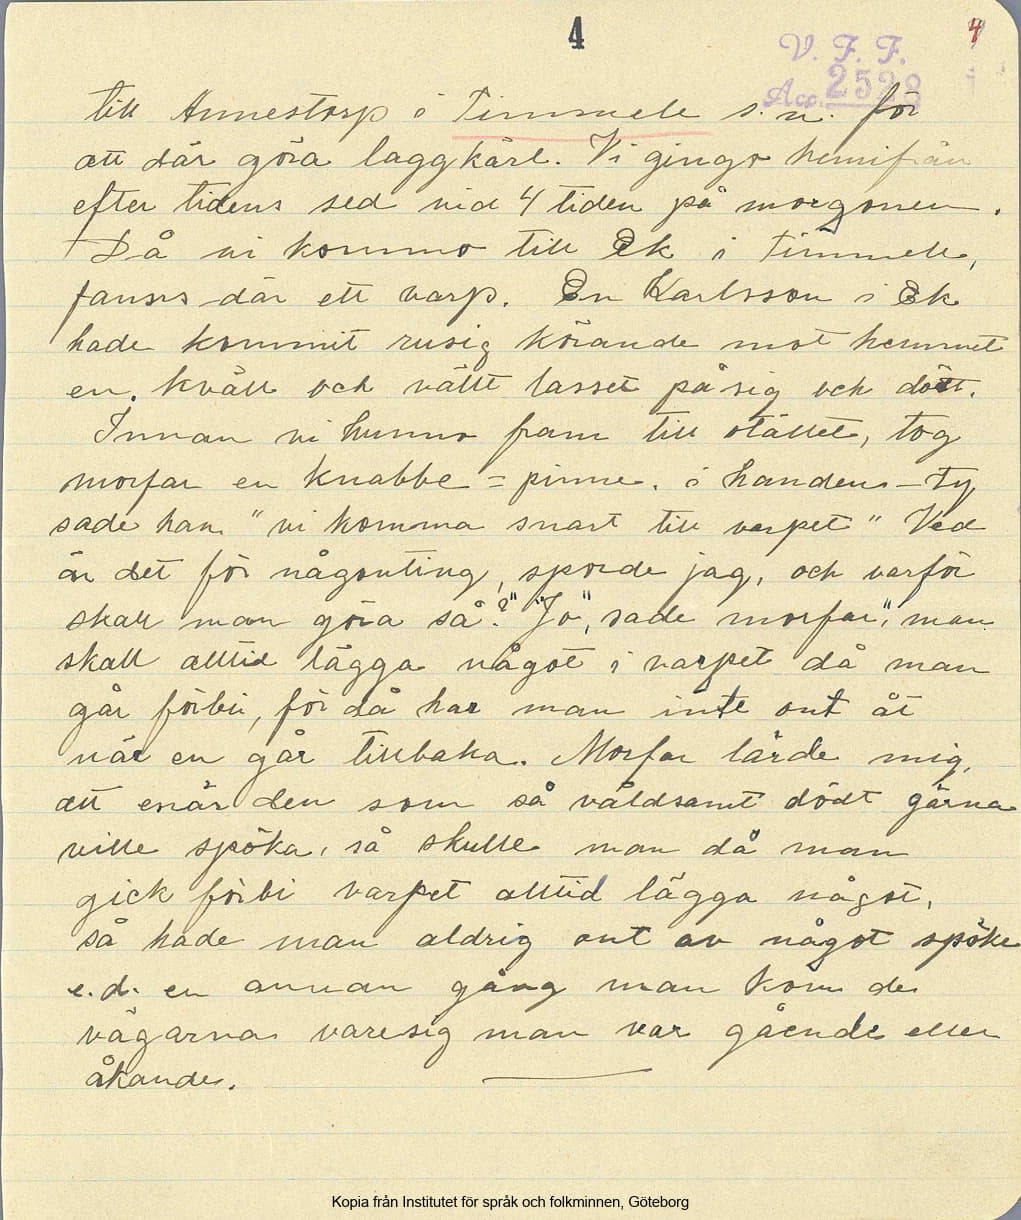 4
4
V. F. F.
Acc. 2528
till Annestorp i Timmele s.n. för
att där göra laggkärl. Vi gingo hemifrån
efter tidens sed vid 4 tiden på morgonen.
Då vi kommo till Ek i Timmele,
fanns där ett varp. En Karlsson i Ek
hade kommit rusig körande mot hemmet
en kväll och vält lasset på sig och dött.
Innan vi hunno fram till stället, tog
morfar en knabbe = pinne. i handen - ty
sade han "vi komma snart till varpet" Vad
är det för någonting, sporde jag, och varför
skall man göra så?" "Jo", sade morfar, "man
skall alltid lägga något i varpet då man
går förbi, för då har man inte ont åt
när en går tillbaka. Morfar lärde mig,
att enär den som så våldsamt dödt gärna
ville spöka, så skulle man då man
gick förbi varpet alltid lägga något,
så hade man aldrig ont av något spöke
e.d. en annan gång man kom de
vägarna varesig man var gående eller
åkande.
Kopia från Institutet för språk och folkminnen, Göteborg